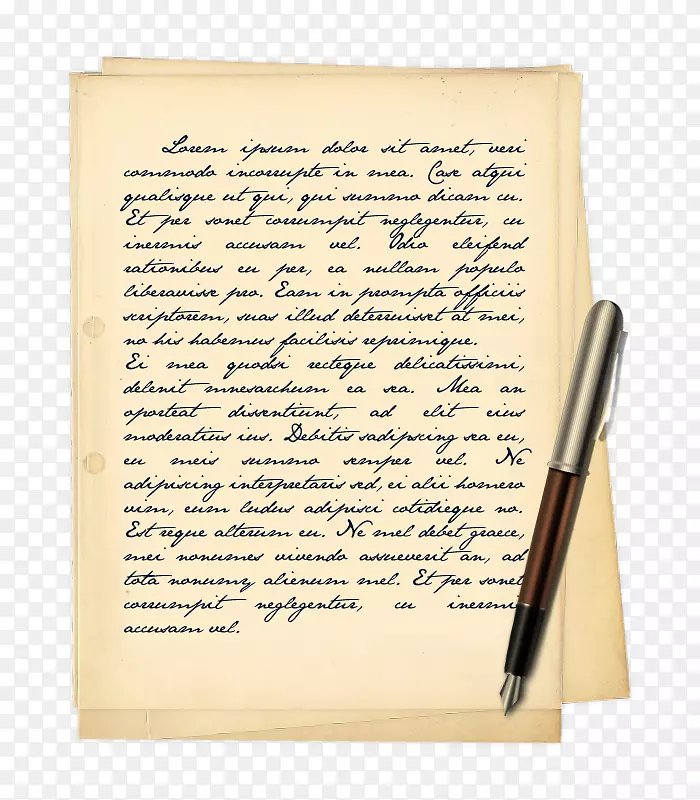 Lorem ipsum dolor sit amet, veri
commodo incorrupte in mea. Case atqui
qualisque ut qui, qui summo dicam cu.
Et per sonet corrumpit neglegentur, cu
inermis accusam vel. Odio eleifend
rationibus eu per, ea nullam populo
liberavisse pro. Eam in prompta officiis
scriptorem, suas illud deterruisset at mei,
no his habemus facilisis reprimique.
Ei mea quodsi recteque delicatissimi,
delenit mnesarchum ea sea. Mea an
oporteat dissentiunt, ad elit eius
moderatius ius. Debitis sadipscing sea eu,
eu meis summo semper vel. Ne
adipiscing interpretaris sed, ei alii homero
vim, eum ludus adipisci cotidieque no.
Est reque alterum eu. Ne mel debet graece,
mei nonumes vivendo assueverit an, ad
tota nonumy alienum mel. Et per sonet
corrumpit neglegentur, cu inermis
accusam vel.